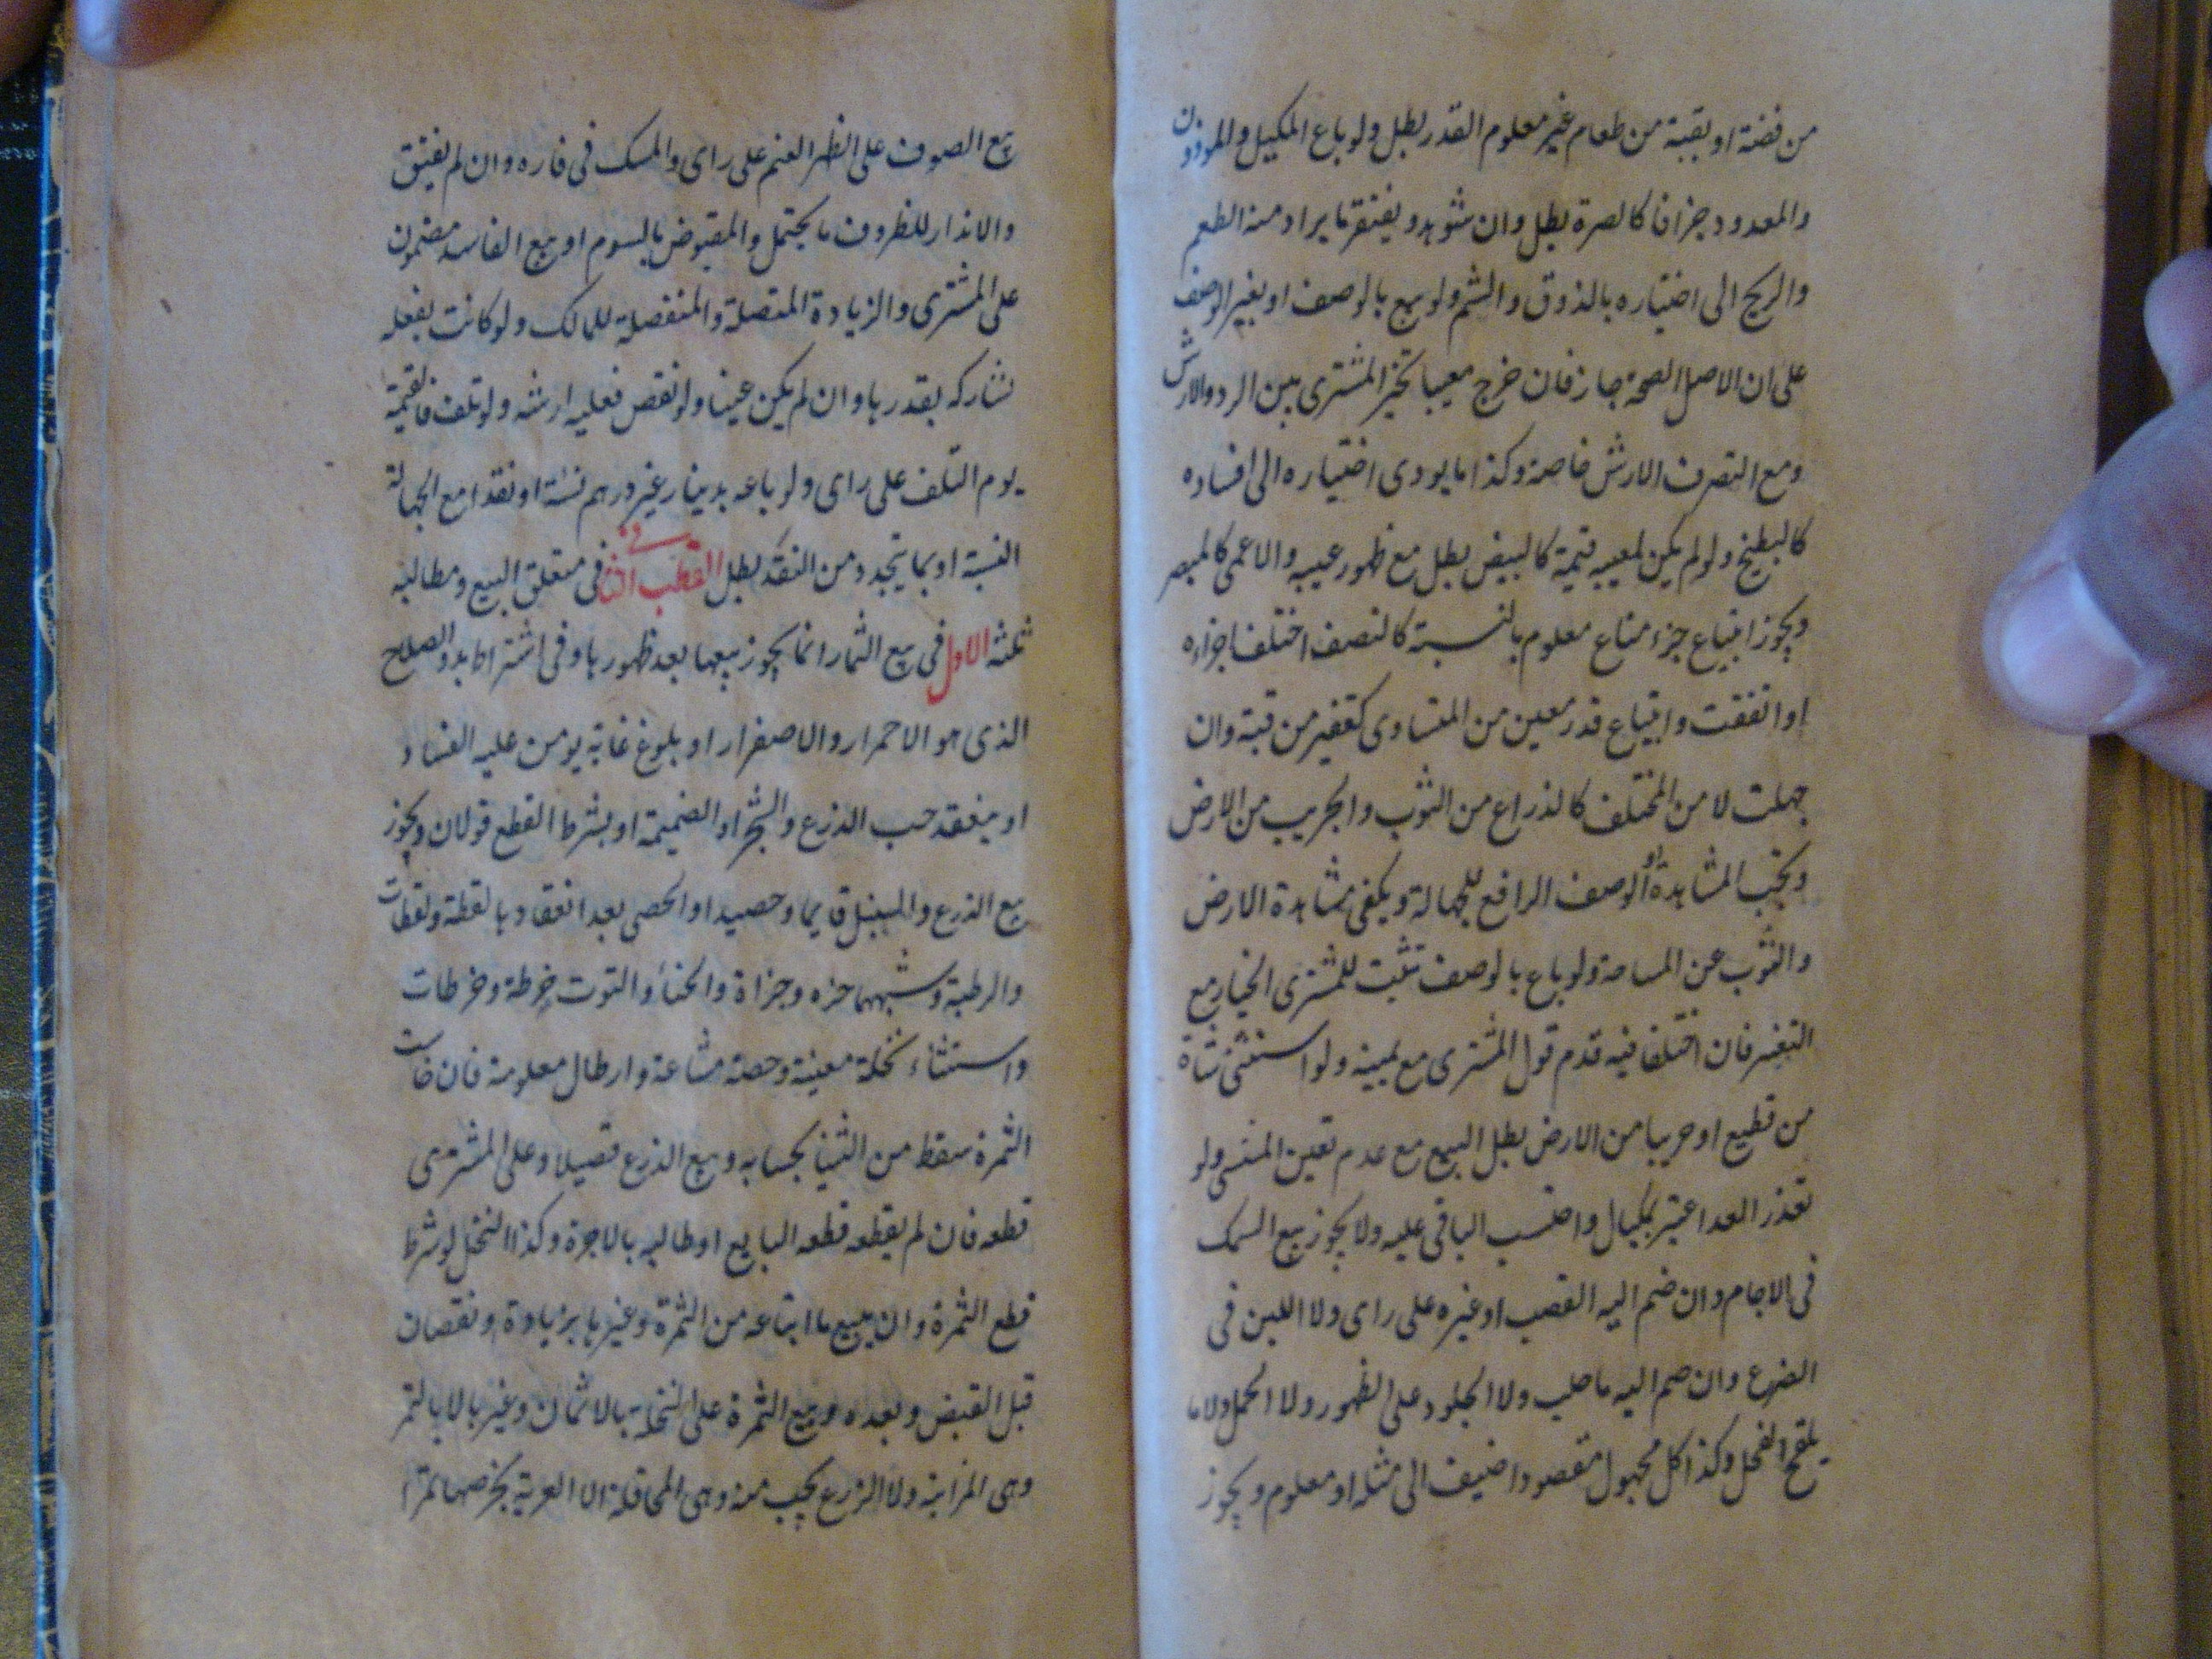 من فضة او بقبة من طعام غير معلوم القدر بطل ولو باع المكيل والموزون
والمعدود جزافا كالصرة بطل وان شوهد ويفتقر ما يراد منه الطعم
والريح الى اختباره بالذوق والشم ولو بيع بالوصف او بغير الوصف
على ان الاصل الصحة جاز فان خرج معيبا تخير المشترى بين الرد والارش
ومع التصرف الارش خاصة وكذا ما يودى اختباره الى افساده
كالبطيخ ولو لم يكن لمعيبه قيمة كالبيض بطل مع ظهور عيبه والاعمى كالمبصر
ويجوز ابتياع جزء مشاع معلوم بالنسبة كالنصف اختلف اجزاءه
او اتفقت وابتياع قدر معين من المتساوى كقفيز من قبة وان
جهلت لا من المختلف كالذراع من الثوب والجريب من الارض
ويجب المشاهدة او الوصف الرافع للجهالة ويكفى مشاهدة الارض
والثوب عن المساحة ولو باع بالوصف تثبت للمشترى الخيار مع
التغير فان اختلفا فيه قدم قول المشترى مع يمينه ولو استثنى شاة
من قطيع او جريبا من الارض بطل البيع مع عدم تعين المثنى ولو
تعذر العد اعتبر بمكيال واحتسب الباقى عليه ولا يجوز بيع السمك
فى الاجام وان ضم اليه القصب او غيره على راى ولا اللبن فى
الضرع وان ضم اليه ما حلب ولا الجلود على الظهور ولا الحمل ولا ما
يلقح الفحل وكذا كل مجهول مقصود اضيف الى مثله او معلوم ويجوز
بيع الصوف على الظهر الغنم على راى والمسك فى فاره وان لم يفتق
والانذار للظروف ما يحتمل والمقبوض بالسوم او بيع الفاسد مضمون
على المشترى والزيادة المتصلة والمنفصلة للمالك ولو كانت بفعله
شاركه بقدرها وان لم يكن عينا ولو نقص فعليه ارشه ولو تلف فالقيمة
يوم التلف على راى ولو باعه بدينار غير درهم نسئة او نقدا مع الجهالة
النسبة او بما يتجدد من النقد بطل القطب الثانى فى متعلق البيع ومطالبه
ثلثة الاول فى بيع الثمار انما يجوز بيعها بعد ظهورها وفى اشتراط بدو الصلاح
الذى هو الاحمرار والاصفرار او بلوغ غاية يومن عليه الفساد
او ينعقد حب الذرع والشجر او الضميمة او بشرط القطع قولان ويجوز
بيع الذرع والسنبل قايما وحصيدا والحصى بعد انعقاد بالقطة ولقطات
والرطبة وشبهها جزه وجزاة والحناء والتوت خرطة وخرطات
واستثناء نخلة معينة وحصة مشاعة وارطال معلومة فان خاست
الثمرة سقط من الثنيا بحسابه وبيع الذرع قصيلا وعلى المشترى
قطعه فان لم يقطعه قطعه البايع او طالبه بالاجرة وكذا النخل لو شرط
قطع الثمرة وان يبيع ما ابتاعه من الثمرة وغيرها بزيادة ونقصان
قبل القبض وبعده وبيع الثمرة على النخلة بالاثمان وغيرها لا بالتمر
وهى المزابنة ولا الزرع بحب منه وهى المحاقلة الا العرية بخرصها تمرا